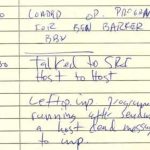 LOADED OP. PROGRAM
FOR BEN BARKER
BBN
Talked to SRI
Host to Host
Left imp. program
running after sending
a host dead message
to imp.